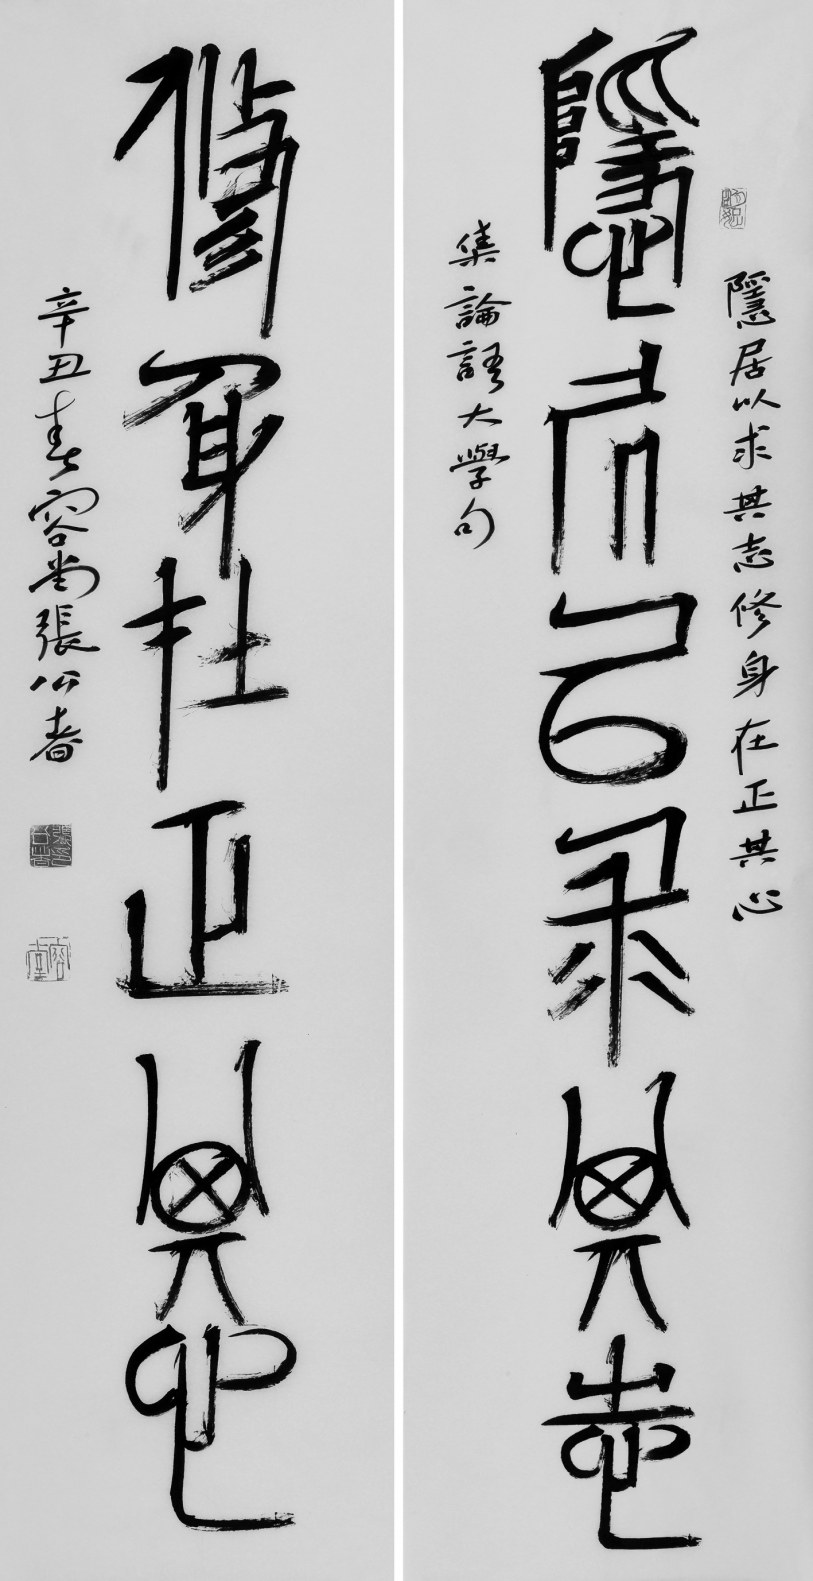 隱居以求其志
隱居以求其志修身在正其心
集論語大學句
修身在正其心
辛丑春容堂張公者